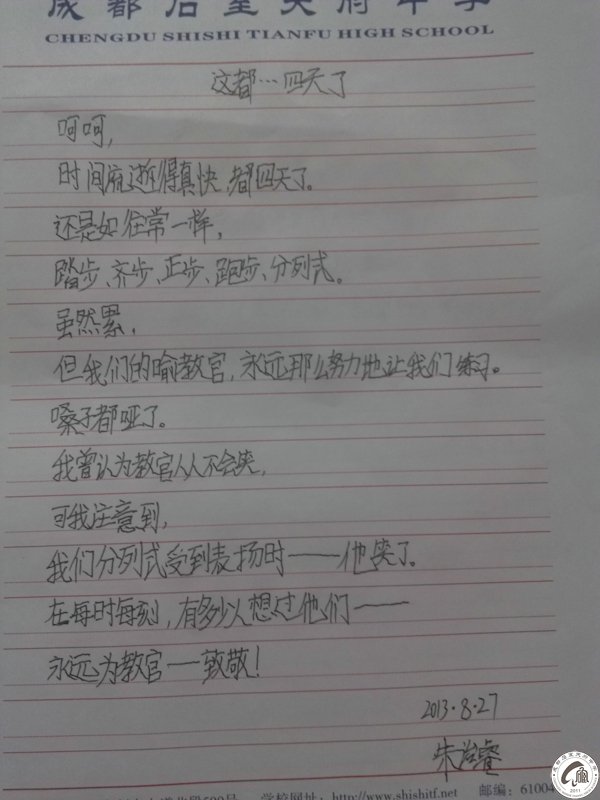 成都石室天府中学
CHENGDU SHISHI TIANFU HIGH SCHOOL
这都…四天了
呵呵，
时间流逝得真快，都四天了。
还是如往常一样，
踏步、齐步、正步、跑步、分列式。
虽然累，
但我们的喻教官，永远那么努力地让我们练习。
嗓子都哑了。
我曾认为教官从不会笑，
可我注意到，
我们分列式受到表扬时——他笑了。
在每时每刻，有多少人想过他们——
永远为教官——致敬！
2013.8.27
朱治睿
段599号 学校网址：http://www.shishitf.net 邮编：61004
2011